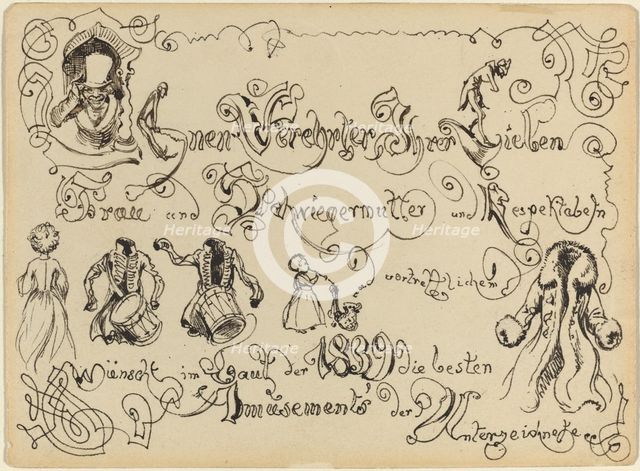 Ihnen Verehrter, Ihrer Lieben
Frau und Schwiegermutter und Respektabeln
vortrefflichem
Wünscht im Lauf der 1839 die besten
Amusements der Unterzeichnete
Heritage
Heritage
Heritage
Heritage
Heritage
Heritage